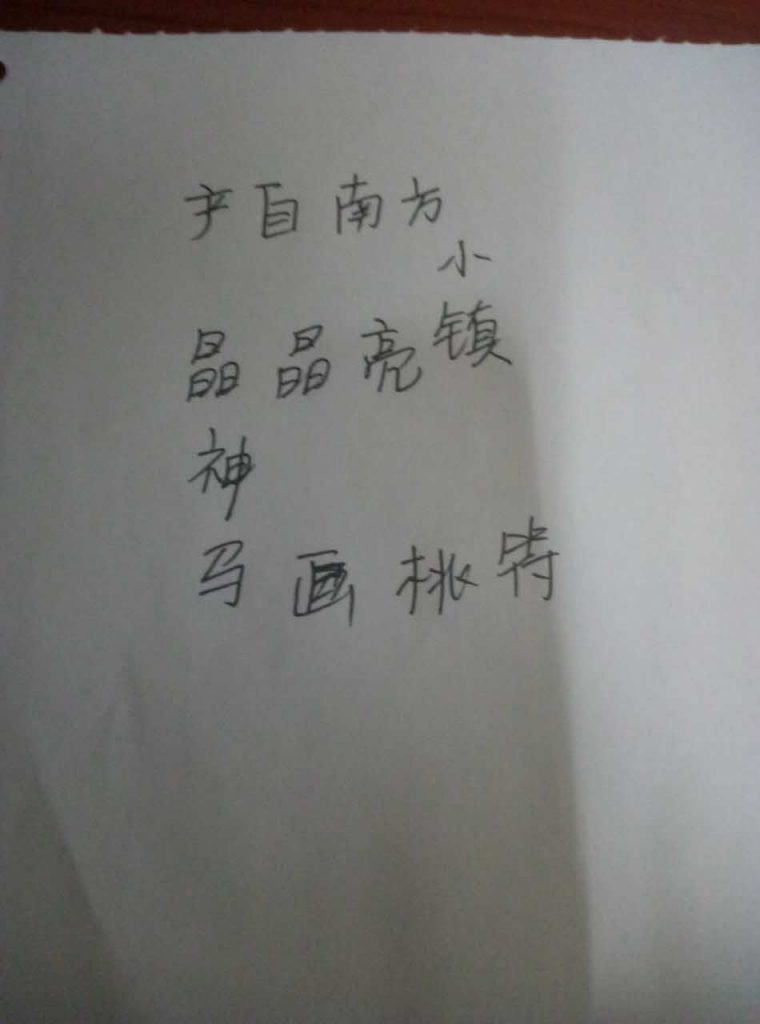 产自南方
小
晶晶亮镇
神
马画桃特